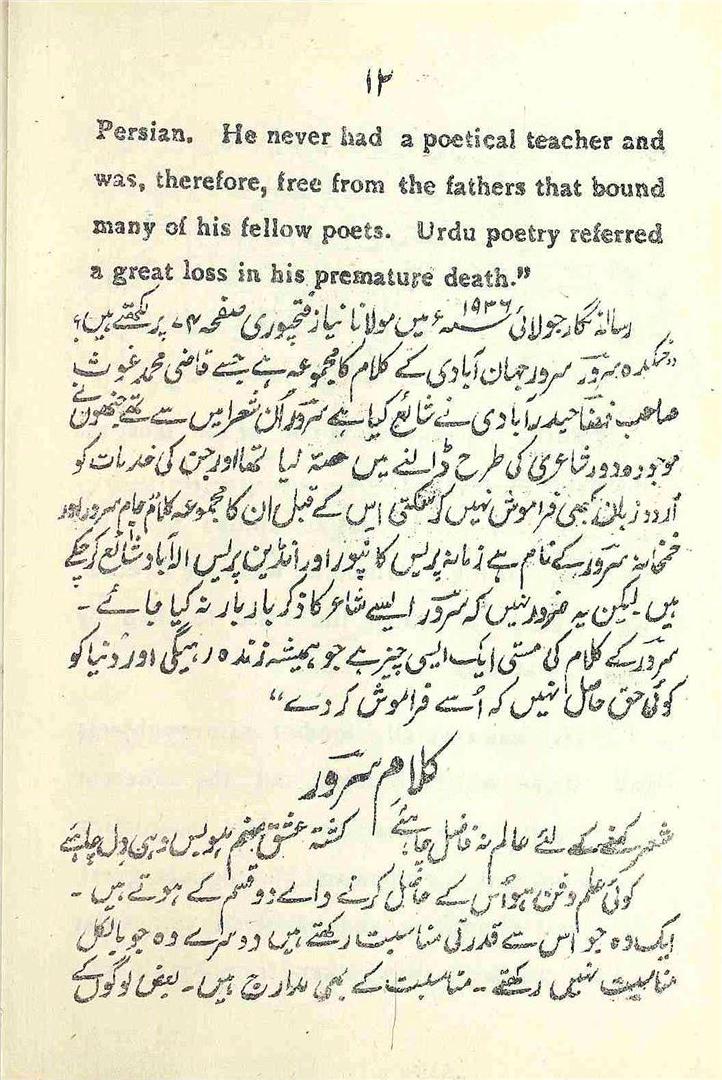 ۱۲
Persian. He never had a poetical teacher and
was, therefore, free from the fathers that bound
many of his fellow poets. Urdu poetry referred
a great loss in his premature death.”
رسالہ نگار جولائی ۱۹۳۶ء میں مولانا نیاز فتحپوری صفحہ ۷۴ پر لکھتے ہیں؟
”خمکدہ سرور سرور جہان آبادی کے کلام کا مجموعہ ہے جسے قاضی محمد غوث
صاحب فضا حیدرآبادی نے شائع کیا ہے سرور اُن شعرا میں سے تھے جنھوں نے
موجودہ دور شاعری کی طرح ڈالنے میں حصہ لیا تھا اور جن کی خدمات کو
اُردو زبان کبھی فراموش نہیں کرسکتی اِس کے قبل ان کا مجموعہ کلام جام سرور اور
خمخانہ سرور کے نام سے زمانہ پریس کانپور اور انڈین پریس الہ آباد شائع کرچکے
ہیں۔ لیکن یہ ضرور نہیں کہ سرور ایسے شاعر کا ذکر بار بار نہ کیا جائے۔
سرور کے کلام کی مستی ایک ایسی چیز ہے جو ہمیشہ زندہ رہیگی اور دنیا کو
کوئی حق حاصل نہیں کہ اُسے فراموش کر دے“
کلامِ سرور
شعر کہنے کے لئے عالم نہ فاضل چاہئے کشتۂ عشق صنم ہو بس وہی دِل چاہئے
کوئی علم و فن ہو اُس کے حاصل کرنے والے دو قسم کے ہوتے ہیں۔
ایک وہ جو اس سے قدرتی مناسبت رکھتے ہیں دوسرے وہ جو بالکل
مناسبت نہیں رکھتے۔ مناسبت کے بھی مدارج ہیں۔ بعض لوگوں کے